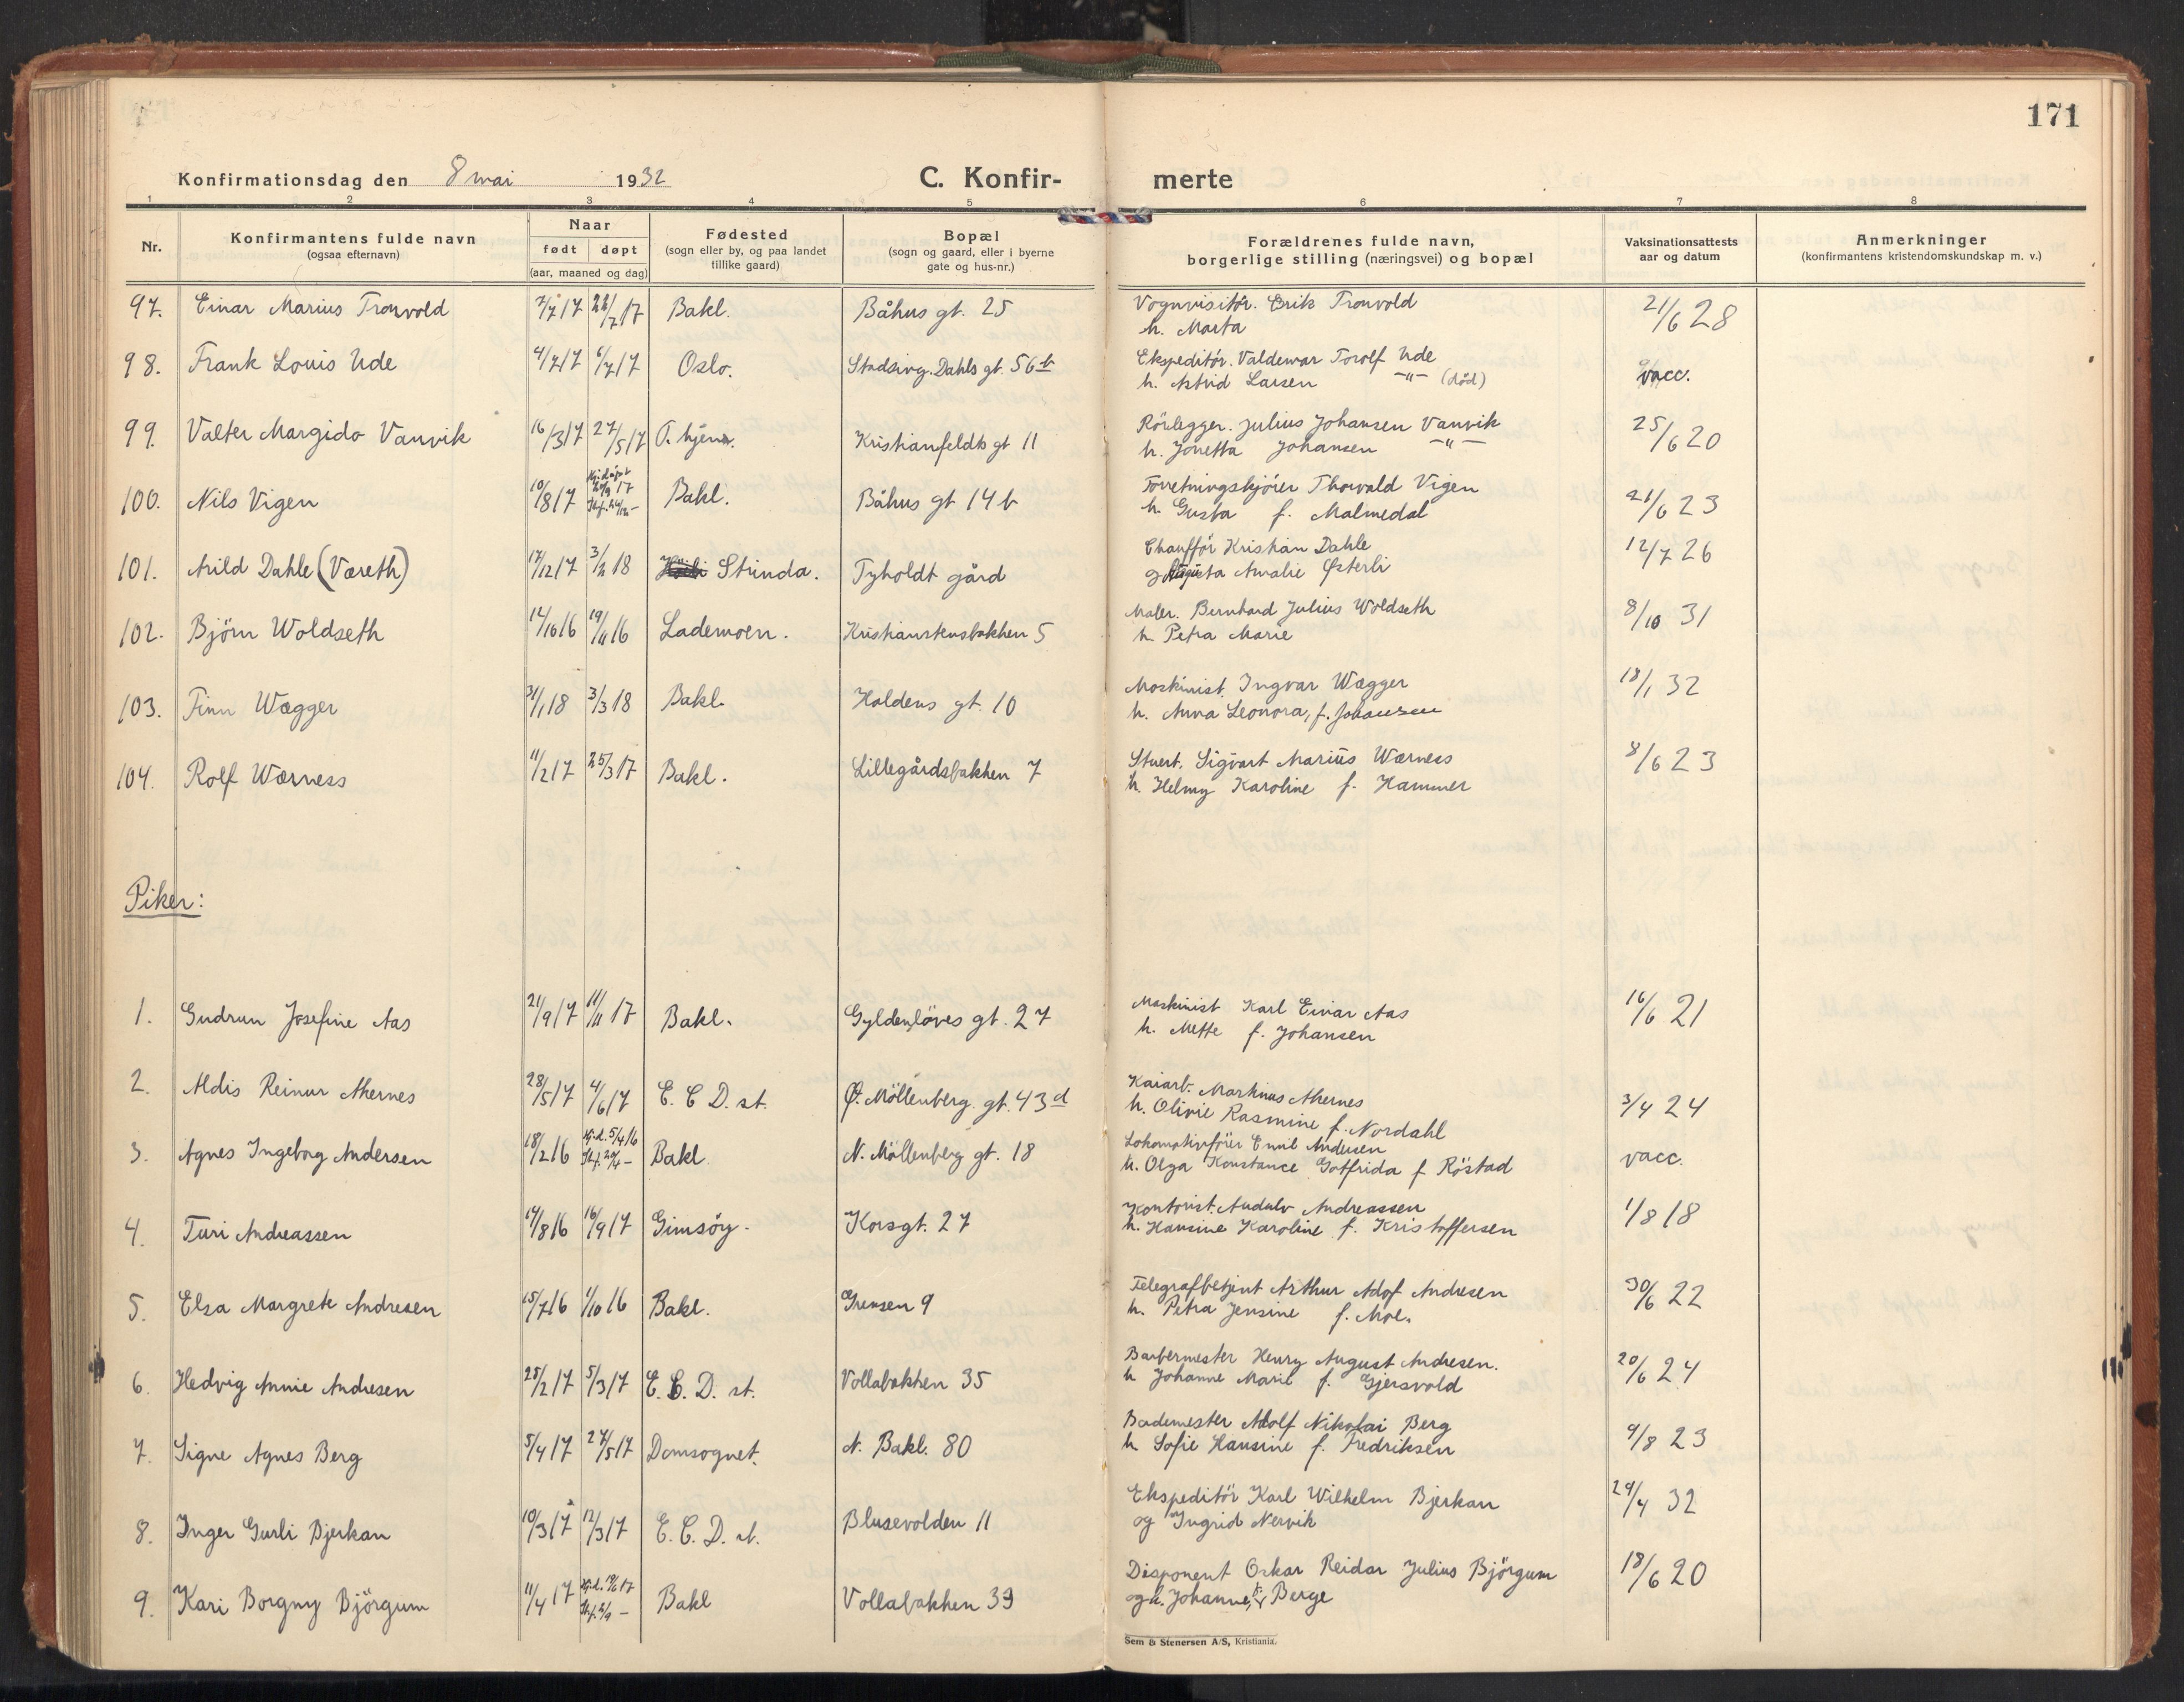 171
Konfirmationsdag den 8 mai 1932 C. Konfir- merte
1 2 3 4 5 6 7 8
Nr. Konfirmantens fulde navn (ogsaa efternavn) Naar født døpt (aar, maaned og dag) Fødested (sogn eller by, og paa landet tillike gaard) Bopæl (sogn og gaard, eller i byerne gate og hus-nr.) Forældrenes fulde navn, borgerlige stilling (næringsvei) og bopæl Vaksinationsattests aar og datum Anmerkninger (konfirmantens kristendomskundskap m. v.)
97. Einar Marius Tronvold 7/7 17 22/7 17 Bakl. Båhus gt. 25 Vognvisitör. Erik Tronvold 21/6 28
h. Marta
98. Frank Louis Ude 4/7 17 6/7 17 Oslo. Stadsing. Dahls gt. 56b Ekspeditör. Valdemar Torolf Ude vacc.
h. Astrid Larsen -"- (död)
99. Valter Margido Vanvik 16/3 17 27/5 17 T.hjem. Kristianfeldts gt 11 Rörlegger. Julius Johansen Vanvik 25/6 20
h. Jonetta Johansen -"-
100. Nils Vigen 10/8 17 Hj.döpt 17 Bakl. Båhus gt 14 b Forretningskjörer Thorvald Vigen 21/6 23
h. Gusta f. Malmedal
101. Arild Dahle (Væreth) 17/12 17 3/2 18 Strinda. Tyholdt gård Chaufför Kristian Dahle 12/7 26
og Augusta Amalie Østerli
102. Björn Woldseth 14/10 16 19/11 16 Lademoen. Kristianstensbakken 5 Maler. Bernhard Julius Woldseth 8/10 31
h. Petra Marie
103. Finn Wægger 31/1 18 3/3 18 Bakl. Haldens gt. 10 Maskinist. Ingvar Wægger 18/1 32
h. Anna Leonora, f. Johansen
104. Rolf Wærness 11/2 17 25/3 17 Bakl. Lillegårdsbakken 7 Stuert. Sigvart Marius Wærness 8/6 23
h. Helmy Karoline f. Hammer
Piker:
1. Gudrun Josefine Aas 21/9 17 11/11 17 Bakl. Gyldenlöves gt. 27 Maskinist Karl Einar Aas 16/6 21
h. Mette f. Johansen
2. Aldis Reinur Akernes 28/5 17 4/6 17 E. C D. st. Ø. Möllenberg. gt. 43d Kaiarb. Markinus Akernes 3/4 24
h. Olivie Rasmine f. Nordahl
3. Agnes Ingeborg Andersen 18/2 16 Hj.d. 5/4 16 Bakl. N. Möllenberg gt. 18 Lokomotivförer Emil Andersen vacc.
h. Olga Konstance Gotfrida f Röstad
4. Turi Andreassen 14/8 16 16/9 17 Gimsöy. Korsgt. 27 Kontorist. Audulv Andreassen 1/8 18
h. Hansine Karoline f. Kristoffersen
5. Elsa Margrete Andresen 15/7 16 1/10 16 Bakl. Grensen 9 Telegrafbetjent Arthur Adof Andresen 30/6 22
h. Petra Jensine f. Moe.
6. Hedvig Annie Andresen 25/2 17 5/3 17 E. C. D. st. Vollabakken 35 Barbermester Henry August Andresen. 20/6 24
h Johanne Marie f. Gjersvold
7. Signe Agnes Berg 5/4 17 27/5 17 Domsognet. N. Bakl. 80 Bademester Adolf Nikolai Berg 9/8 23
h Sofie Hansine f. Fredriksen
8. Inger Gurli Bjerkan 10/3 17 12/3 17 E. C. D. st. Blusevolden 11 Ekspeditör Karl Wilhelm Bjerkan 29/4 32
og Ingrid Nervik
9. Kari Borgny Björgum 11/4 17 Hj.d. 17 Bakl Vollabakken 39 Disponent Oskar Reidar Julius Björgum 18/6 20
og h. Johanne, f. Berge
Sem & Stenersen A/S, Kristiania.